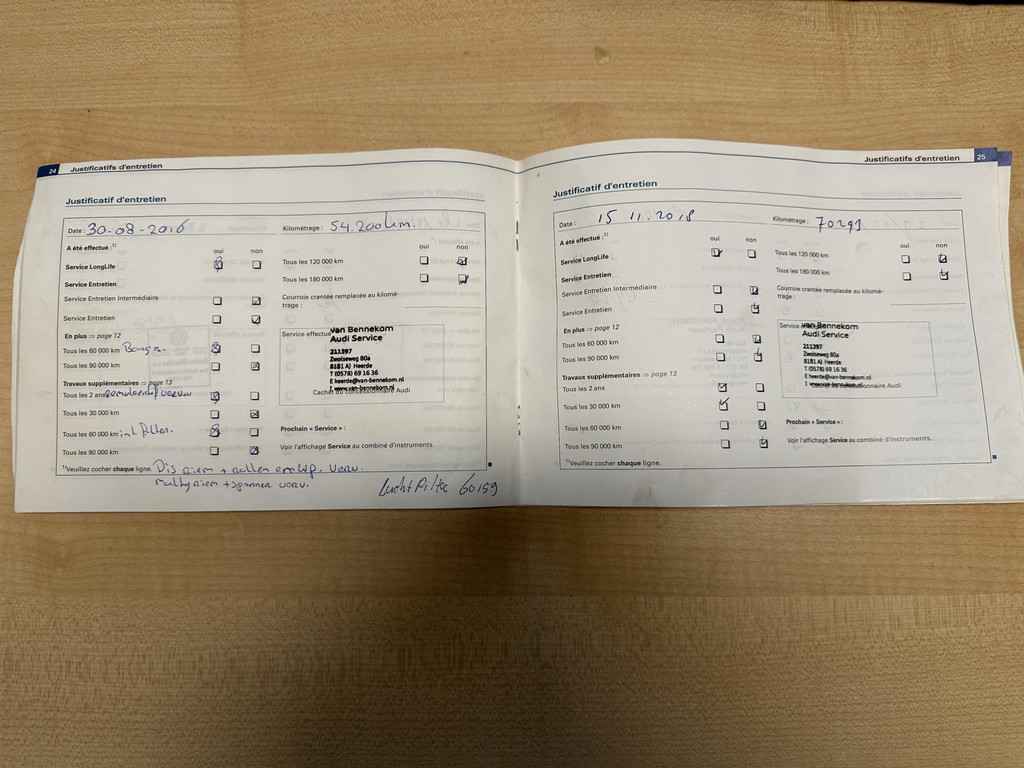 24 Justificatifs d'entretien
Justificatif d'entretien
Date : 30-08-2016 Kilométrage : 54.200km.
A été effectué :1)
oui non oui non
Service LongLife Tous les 120 000 km
Service Entretien Tous les 180 000 km
Service Entretien Intermédiaire Courroie crantée remplasée au kilomé-
trage :
Service Entretien
En plus ⇒ page 12 Service effectué
van Bennekom
Audi Service
211397
Zwolseweg 80a
8181 AJ Heerde
T (0578) 69 16 36
E heerde@van-bennekom.nl
I www.van-bennekom.nl
Cachet du concessionnaire Audi
Tous les 60 000 km
Tous les 90 000 km
Travaux supplémentaires ⇒ page 13
Tous les 2 ans remvloeistof verv
Tous les 30 000 km
Prochain « Service » :
Tous les 60 000 km int filter.
Voir l'affichage Service au combiné d'instruments.
Tous les 90 000 km
1)Veuillez cocher chaque ligne. Dis riem + rollen verv.
multyriem + spanner verv. Luchtfilter 60159
Justificatifs d'entretien 25
Justificatif d'entretien
Date : 15 11.2018 Kilométrage : 70291
A été effectué :1)
oui non oui non
Service LongLife Tous les 120 000 km
Service Entretien Tous les 180 000 km
Service Entretien Intermédiaire Courroie crantée remplasée au kilomé-
trage :
Service Entretien
En plus ⇒ page 12
van Bennekom
Audi Service
211397
Zwolseweg 80a
8181 AJ Heerde
T (0578) 69 16 36
E heerde@van-bennekom.nl
I www.van-bennekom.nl
Cachet du concessionnaire Audi
Tous les 60 000 km
Tous les 90 000 km
Travaux supplémentaires ⇒ page 13
Tous les 2 ans
Tous les 30 000 km
Prochain « Service » :
Tous les 60 000 km
Voir l'affichage Service au combiné d'instruments.
Tous les 90 000 km
1)Veuillez cocher chaque ligne.